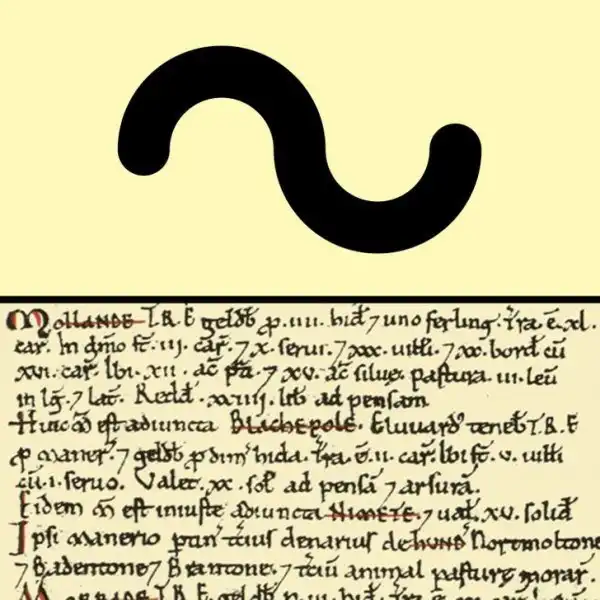 ~
Mollande T.R.E geldb̄ ꝓ .iiii. hid̄ ⁊ uno ferling. T̄ra .ē .xl.
car̄. In dn̄io st̄ .iii. car̄. ⁊ .x. serui. ⁊ .xxx. uilli. ⁊ .xx. bord̄ cū
.xvi. car̄. Ibi .xii. ac̄ p̄ti. ⁊ .xv. ac̄ siluę. Pastura .iii. leū
in lḡ. ⁊ lat̄. Redd̄ .xxiiii. lib̄ ad pensam
Huic m̄ est adiuncta Blachepole. Eluuard' teneb̄ T.R.E
ꝓ maner̄. ⁊ geldb̄ ꝓ dim̄ hida. T̄ra .ē .ii. car̄. Ibi st̄ .v. uilli
cū .i. seruo. Valet .xx. sol̄ ad pensā ⁊ arsurā.
Eidem m̄ est iniuste adiuncta Nimete. ⁊ ual̄ .xv. solid̄
Ipsi manerio ptin̄ tcius denarius de hund̄ Nortmoltone
⁊ Badentone ⁊ Brantone. ⁊ tciū animal pasturę morar̄.